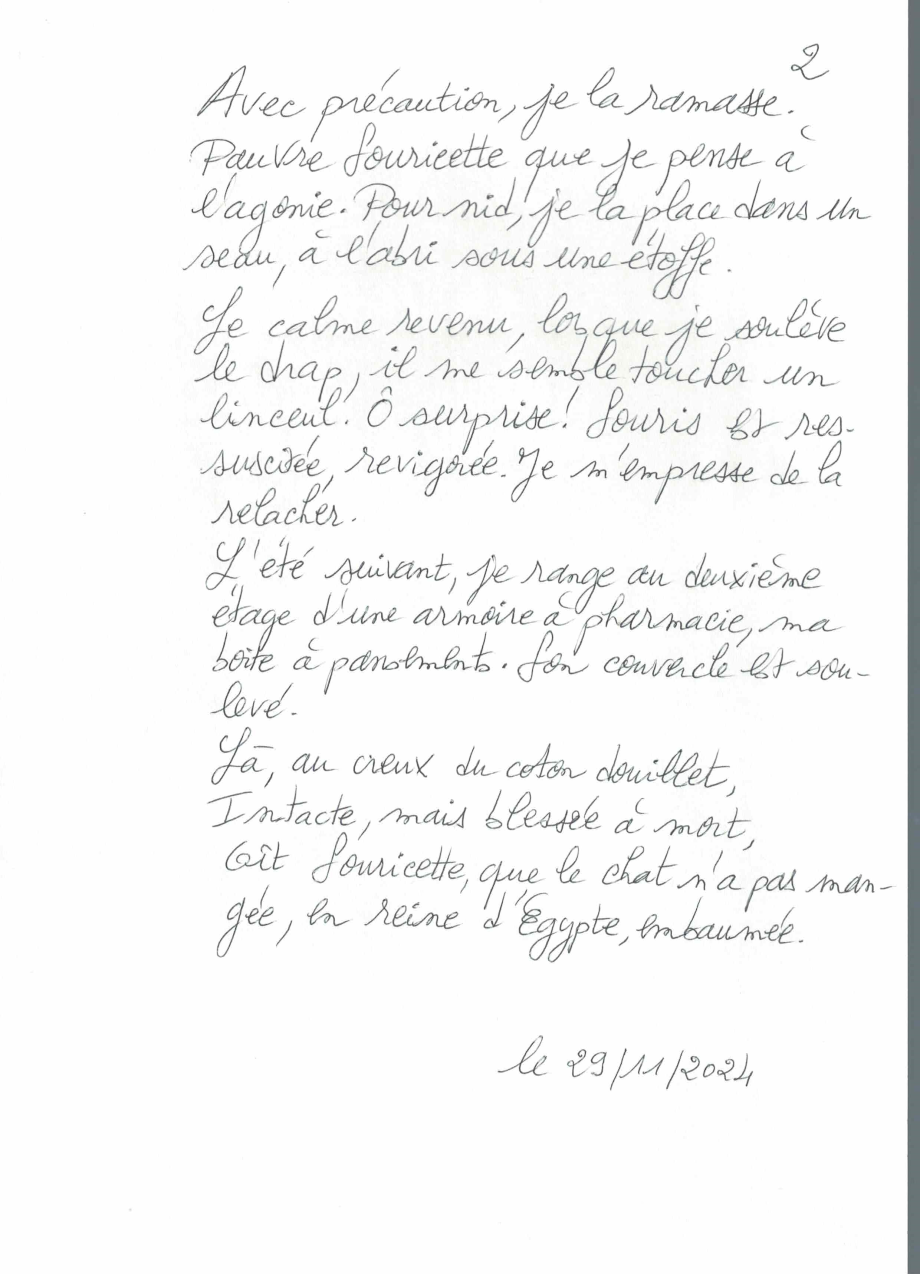 2
Avec précaution, je la ramasse.
Pauvre Souricette que je pense à
l'agonie. Pour nid, je la place dans un
seau, à l'abri sous une étoffe.
Le calme revenu, lorsque je soulève
le drap, il me semble toucher un
linceul. Ô surprise ! Souris est res-
suscitée, revigorée. Je m'empresse de la
relacher.
L'été suivant, je range au deuxième
étage d'une armoire à pharmacie, ma
boîte à pansements. Son couvercle est sou-
levé.
Là, au creux du coton douillet,
Intacte, mais blessée à mort,
Gît Souricette, que le chat n'a pas man-
gée, en reine d'Egypte, embaumée.
le 29/11/2024